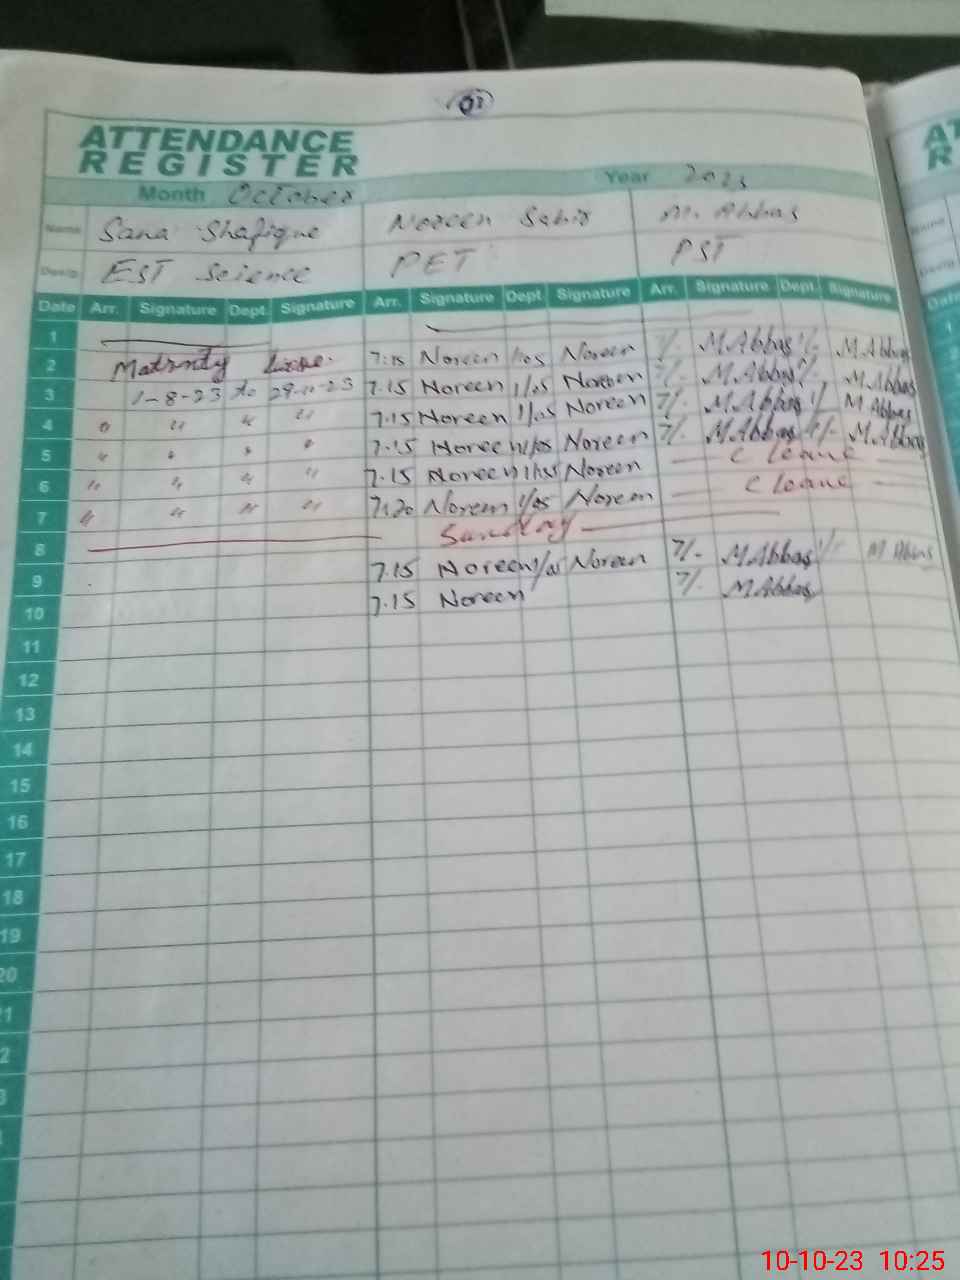 01
ATTENDANCE
REGISTER
Month October Year 2023
Name Sana Shafique Noreen Sabir M. Abbas
Desig EST Science PET PST
Date Arr. Signature Dept. Signature Arr. Signature Dept. Signature Arr. Signature Dept. Signature
1
2 7:15 Noreen 1/05 Noreen 7/. M.Abbas 1/. M.Abbas
3 1-8-23 to 29-11-23 7.15 Noreen 1/05 Noreen 7/. M.Abbas 1/. M.Abbas
4 " " " " 7.15 Noreen 1/05 Noreen 7/. M.Abbas 1/. M Abbas
5 " " " " 7.15 Noreen 1/05 Noreen 7/. M.Abbas 1/. M.Abbas
6 " " " " 7.15 Noreen Noreen C leave
7 " " " " 7.20 Noreen 1/05 Noreen C leave
8 Sunday
9 7.15 Noreen 1/05 Noreen 7/. M.Abbas 1/. M Abbas
10 7.15 Noreen 7/. M.Abbas
11
12
13
14
15
16
17
18
19
20
AT
R
10-10-23 10:25